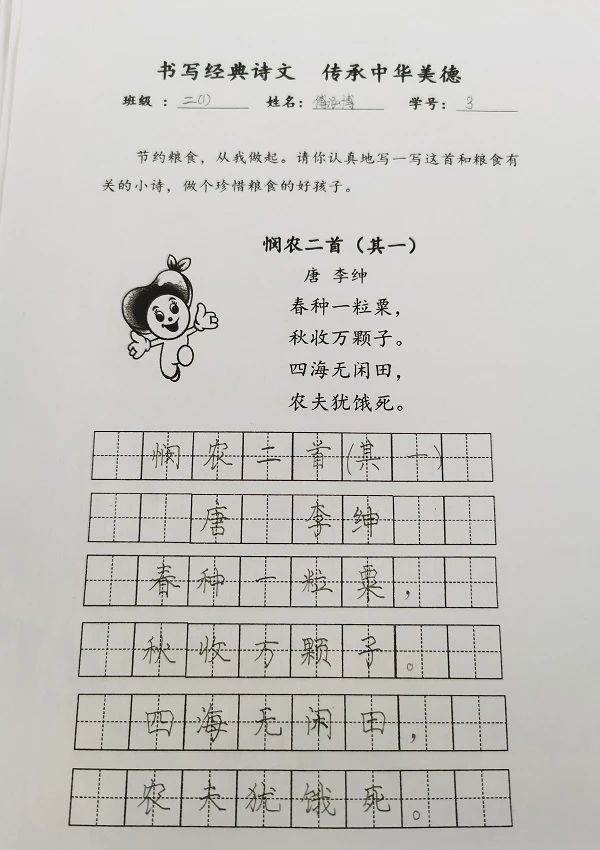 书写经典诗文 传承中华美德
班级：二(1) 姓名：傅泓博 学号：3
节约粮食，从我做起。请你认真地写一写这首和粮食有
关的小诗，做个珍惜粮食的好孩子。
悯农二首（其一）
唐 李绅
春种一粒粟，
秋收万颗子。
四海无闲田，
农夫犹饿死。
悯农二首(其一)
唐 李绅
春种一粒粟，
秋收万颗子。
四海无闲田，
农夫犹饿死。